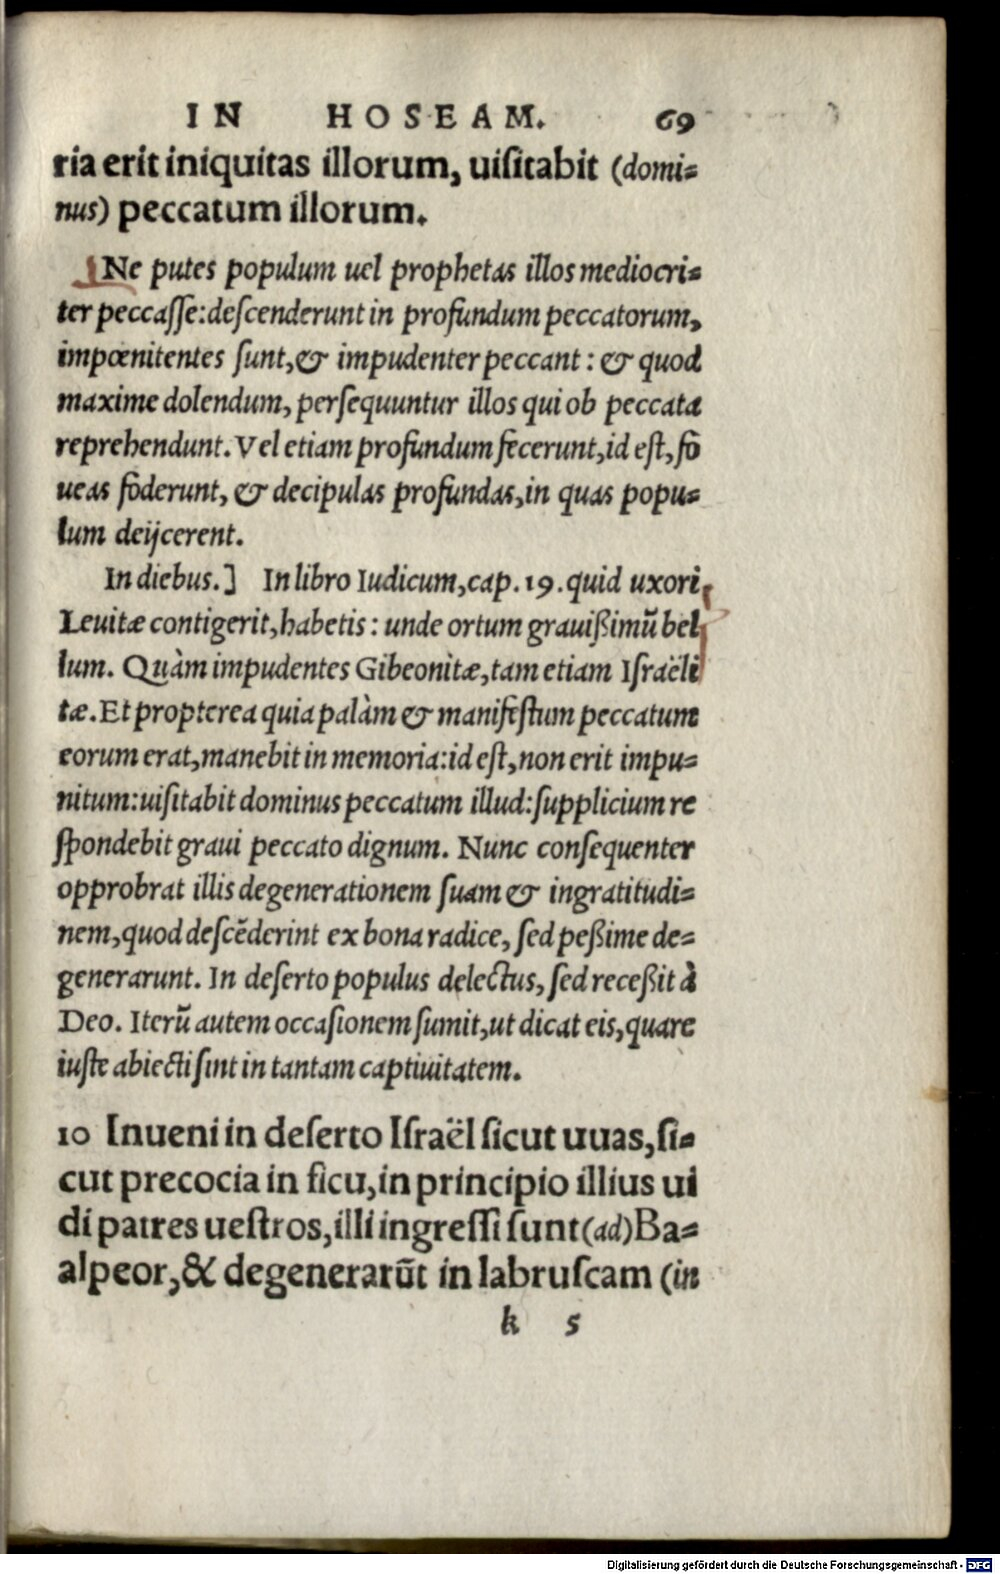 IN HOSEAM. 69
ria erit iniquitas illorum, uiſitabit (domi⸗
nus) peccatum illorum.
Ne putes populum uel prophetas illos mediocri⸗
ter peccaſſe: deſcenderunt in profundum peccatorum,
impœnitentes ſunt, & impudenter peccant: & quod
maxime dolendum, perſequuntur illos qui ob peccata
reprehendunt. Vel etiam profundum fecerunt, id eſt, fo
ueas foderunt, & decipulas profundas, in quas popu⸗
lum deijcerent.
In diebus.] In libro Iudicum, cap. 19. quid uxori
Leuitæ contigerit, habetis: unde ortum grauißimũ bel
lum. Quàm impudentes Gibeonitæ, tam etiam Iſraëli
tæ. Et propterea quia palàm & manifeſtum peccatum
eorum erat, manebit in memoria: id eſt, non erit impu⸗
nitum: uiſitabit dominus peccatum illud: ſupplicium re
ſpondebit graui peccato dignum. Nunc conſequenter
opprobrat illis degenerationem ſuam & ingratitudi⸗
nem, quod deſcẽderint ex bona radice, ſed peßime de⸗
generarunt. In deſerto populus delectus, ſed receßit à
Deo. Iterũ autem occaſionem ſumit, ut dicat eis, quare
iuſte abiecti ſint in tantam captiuitatem.
10 Inueni in deſerto Iſraël ſicut uuas, ſi⸗
cut precocia in ficu, in principio illius ui
di patres ueſtros, illi ingreſſi ſunt (ad) Ba⸗
alpeor, & degenerarũt in labruſcam (in
k 5
Digitalisierung gefördert durch die Deutsche Forschungsgemeinschaft - DFG